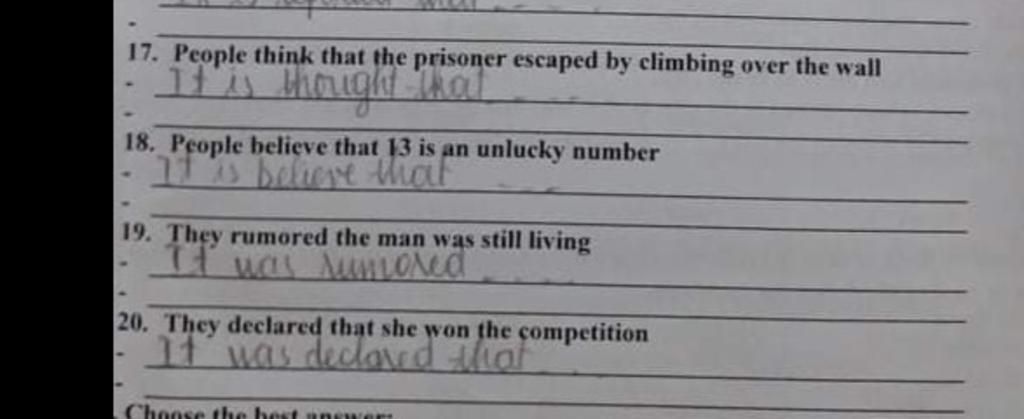 17. People think that the prisoner escaped by climbing over the wall
- It is thought that ....
-
18. People believe that 13 is an unlucky number
- It is believe that ....
-
19. They rumored the man was still living
- It was rumored ....
-
20. They declared that she won the competition
- It was declared that ....
-
Choose the best answer: